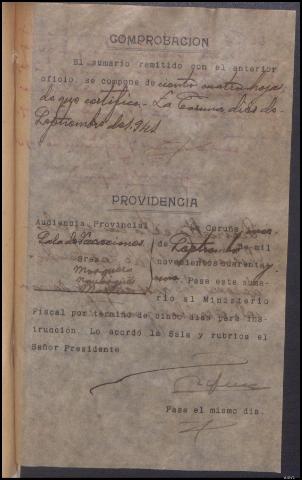 COMPROBACION
El sumario remitido con el anterior
oficio, se compone de ciento cuatro hojas
de que certifico.- La Coruña dies de
Septiembre de 1941
PROVIDENCIA
Audiencia Provincial
Sala de Vacaciones
Sres.
Marquez
La Coruña
de Septiembre de mil
novecientos cuarenta y
uno. Pase este suma-
rio al Ministerio
Fiscal por termino de cinco dias para ins-
trucción. Lo acordó la Sala y rubrica el
Señor Presidente
Pasa el mismo dia.